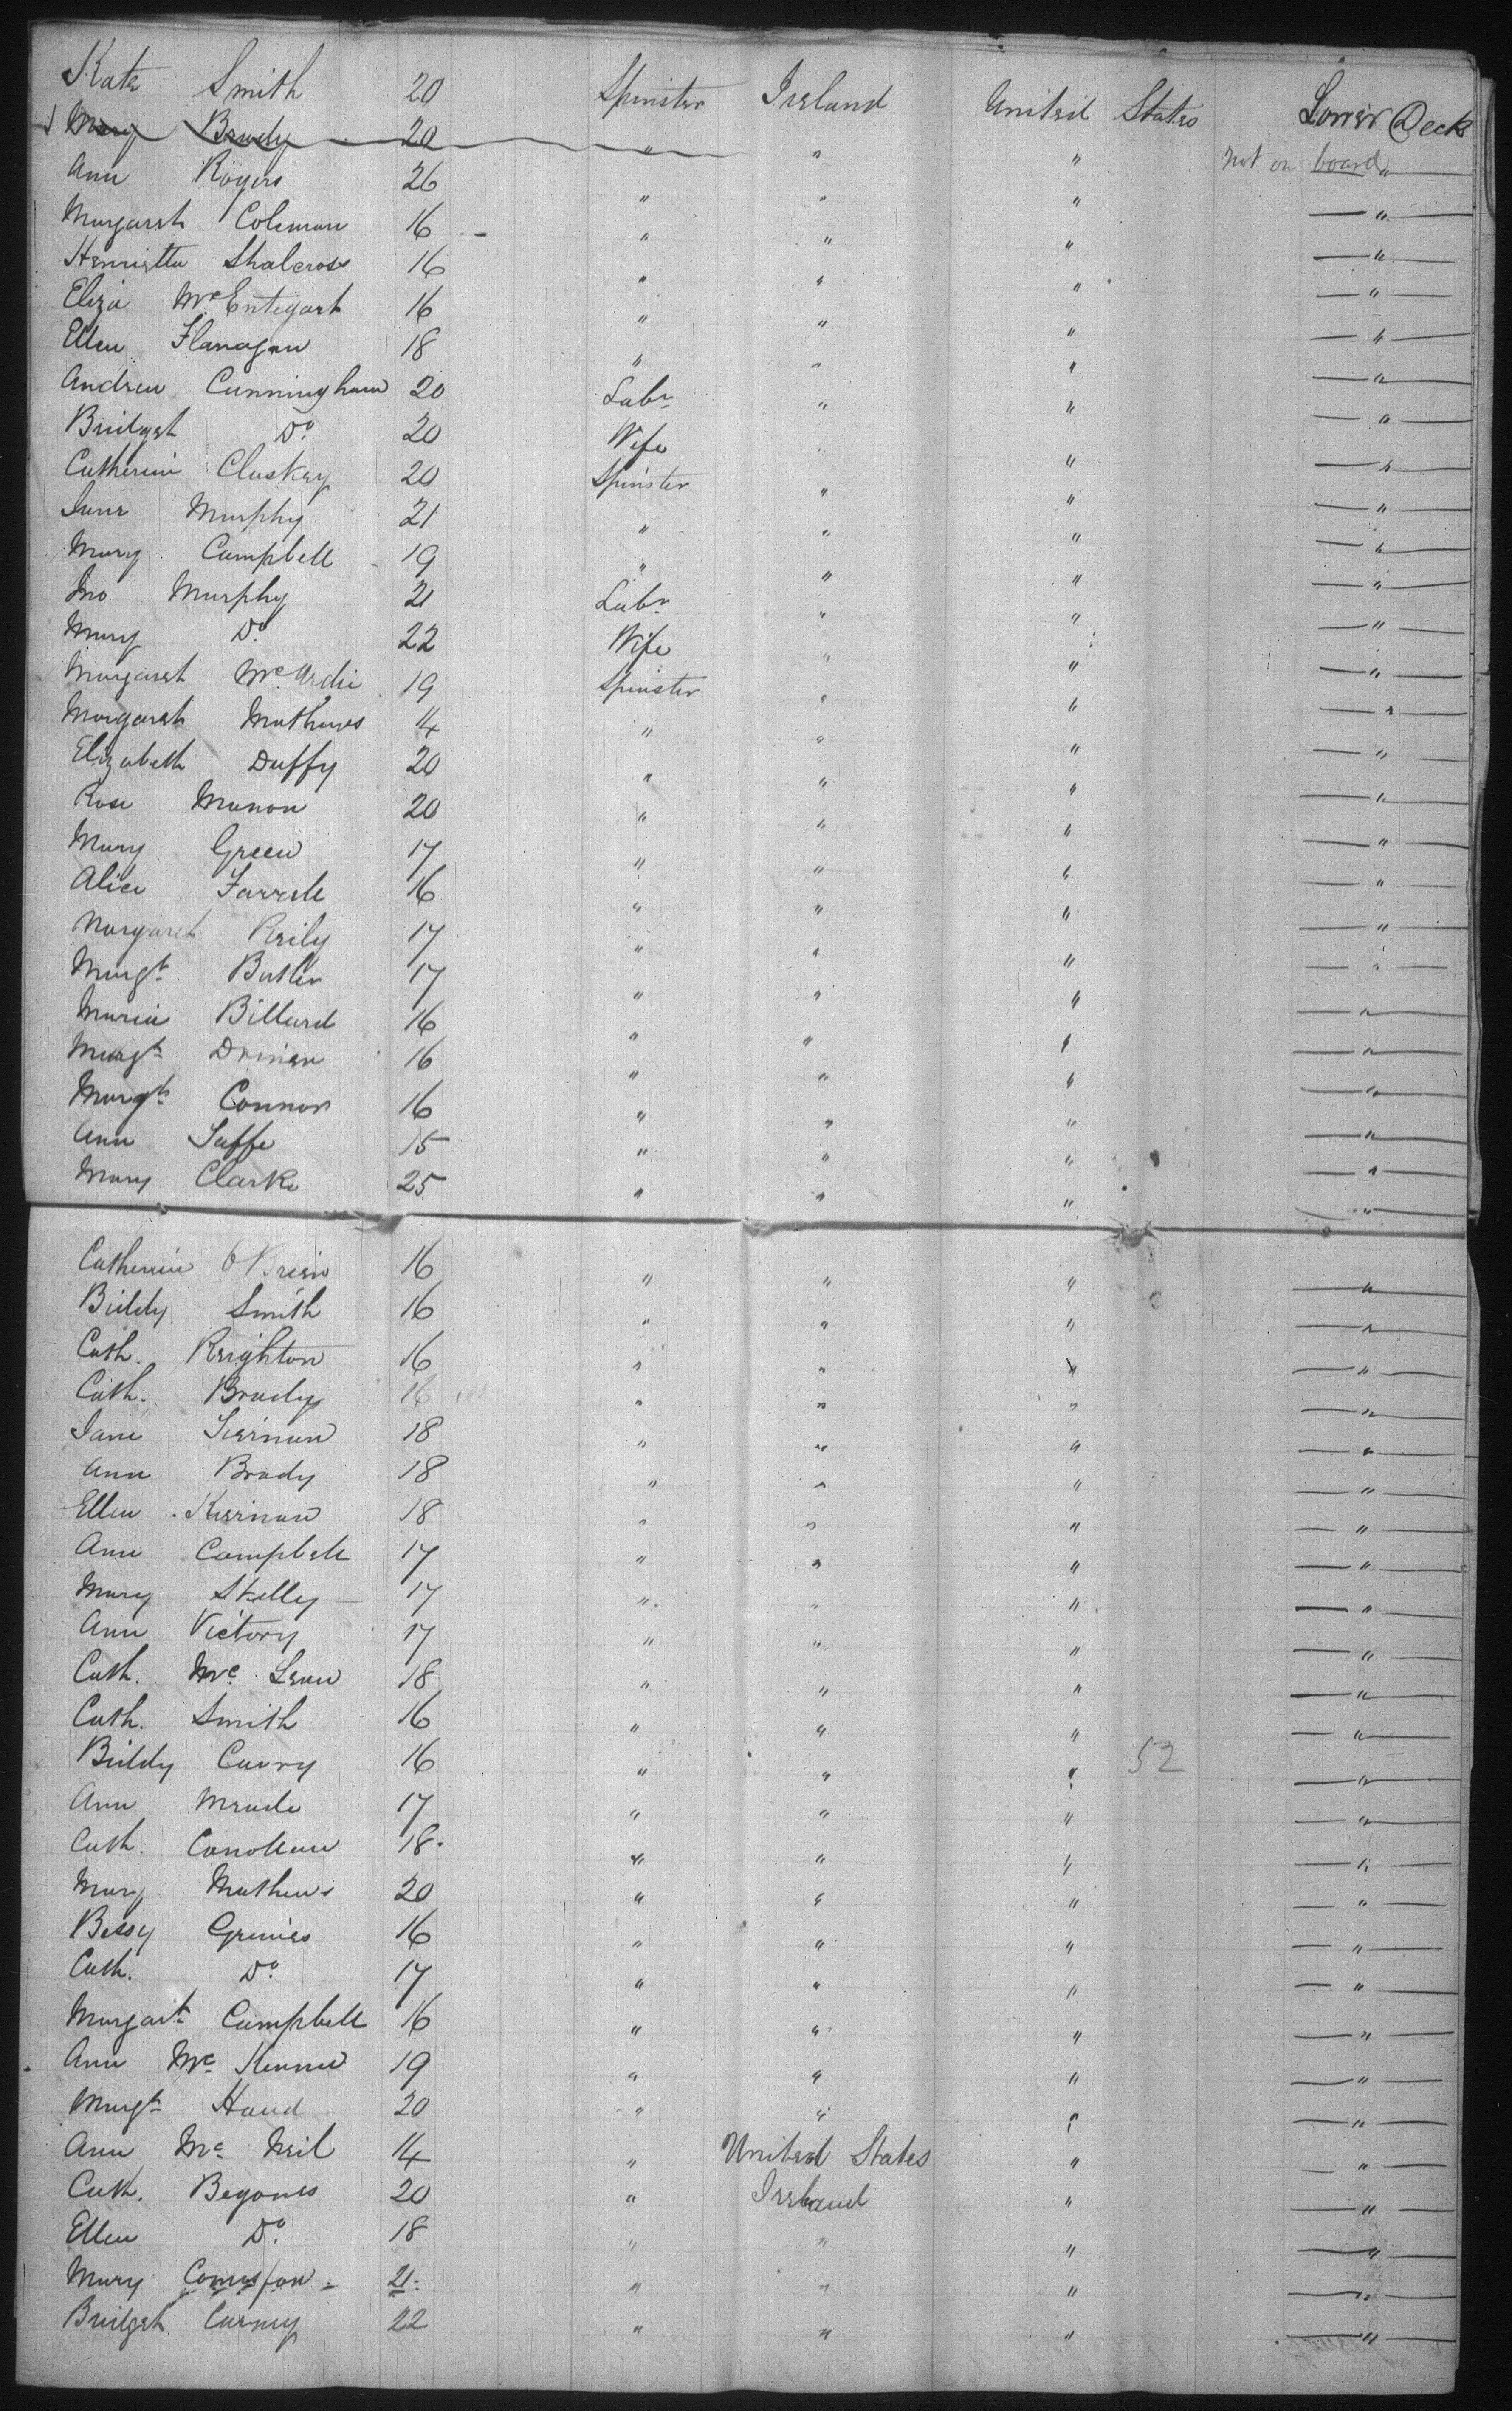 Kate Smith 20 Spinster Ireland United States Lower Deck
Mary Brady 20 " " " not on board "
Ann Rogers 26 " " " "
Margaret Coleman 16 " " " "
Henrietta Shalcross 16 " " " "
Eliza McEntegart 16 " " " "
Ellen Flanagan 18 " " " "
Andrew Cunningham 20 Labr " " "
Bridget Do. 20 Wife " " "
Catherine Cluskey 20 Spinster " " "
Jane Murphy 21 " " " "
Mary Campbell 19 " " " "
Jno Murphy 21 Labr " " "
Mary Do. 22 Wife " " "
Margaret McArdie 19 Spinster " " "
Margaret Mathews 14 " " " "
Elizabeth Duffy 20 " " " "
Rose Munon 20 " " " "
Mary Green 17 " " " "
Alice Farrell 16 " " " "
Margaret Reily 17 " " " "
Margt. Butler 17 " " " "
Maria Billard 16 " " " "
Margt. Drinan 16 " " " "
Margt. Connor 16 " " " "
Ann Taffe 15 " " " "
Mary Clarke 25 " " " "
Catherine O'Brien 16 " " " "
Biddy Smith 16 " " " "
Cath. Reighton 16 " " " "
Cath. Brady 16 " " " "
Jane Tiernan 18 " " " "
Ann Brady 18 " " " "
Ellen Kiernan 18 " " " "
Ann Campbell 17 " " " "
Mary Skelly 17 " " " "
Ann Victory 17 " " " "
Cath. Mc. 18 " " " "
Cath. Smith 16 " " " "
Biddy Curry 16 " " " 52 "
Ann Meade 17 " " " "
Cath. 18 " " " "
Mary Mathews 20 " " " "
Bessy Grimes 16 " " " "
Cath. Do. 17 " " " "
Margart. Campbell 16 " " " "
Ann Mc Kenna 19 " " " "
Margt. Hand 20 " " " "
Ann Mc. Neil 14 " United States " "
Cath. Begones 20 " Ireland " "
Ellen Do. 18 " " " "
Mary 21 " " " "
Bridget Carney 22 " " " "